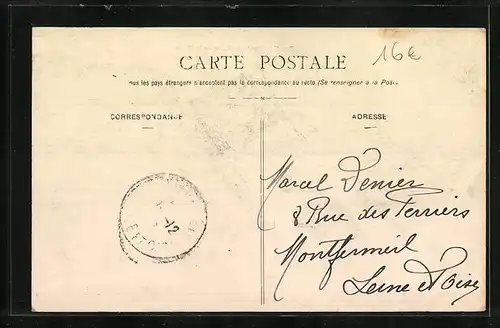 CARTE POSTALE
16€
us les pays étrangers n'acceptent pas la correspondance au recto (Se renseigner à la Poste
CORRESPONDANCE
ADRESSE
Marcel Denier
8 Rue des Terriers
Montfermeil
Seine et Oise
12